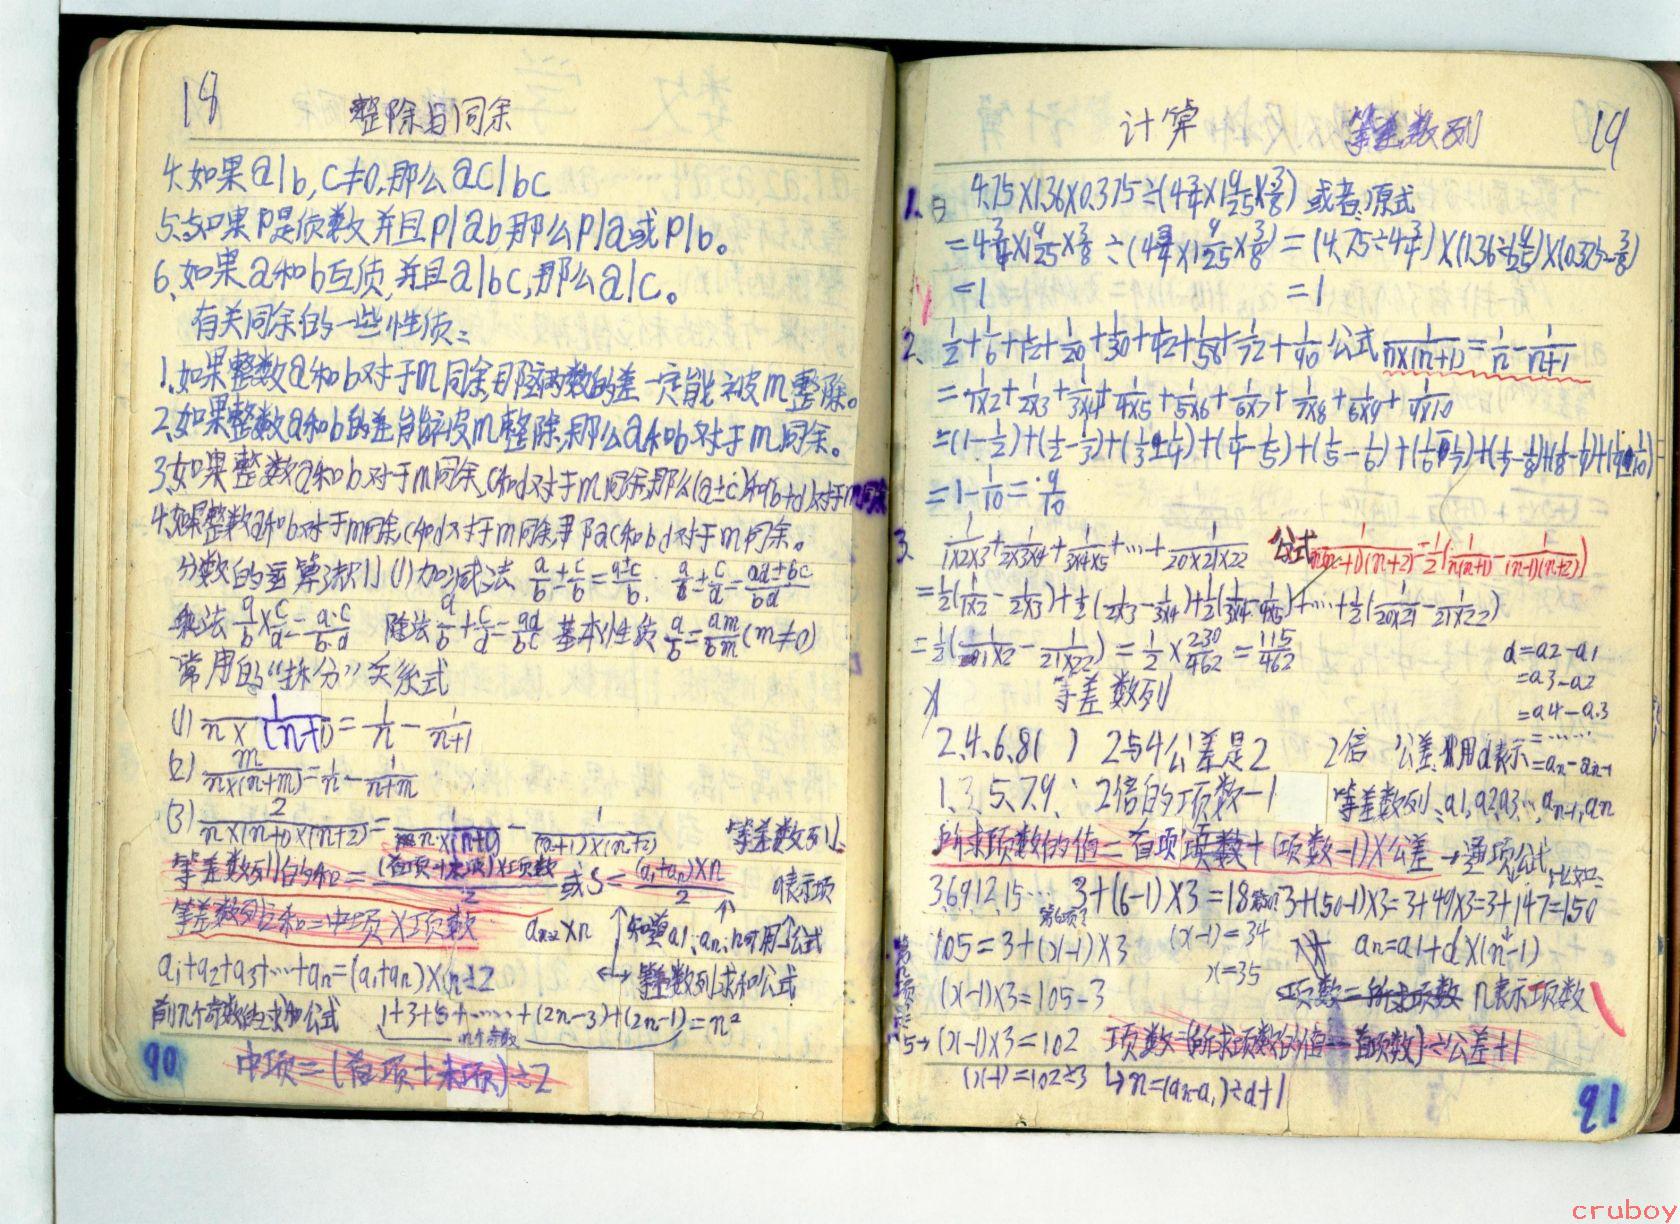 18 整除与同余
4.如果a|b,c≠0,那么ac|bc
5.如果P是质数并且P|ab那么P|a或P|b。
6、如果a和b互质,并且a|bc,那么a|c。
有关同余的一些性质:
1.如果整数a和b对于m同余,那么两数的差一定能被m整除。
2.如果整数a和b的差能被m整除,那么a和b对于m同余。
3.如果整数a和b对于m同余,c和d对于m同余,那么(a±c)和(b±d)对于m同余
4.如果整数a和b对于m同余,c和d对于m同余,那ac和b.d对于m同余。
分数的运算法则(1)加减法 a/b±c/b=a±c/b; a/b±c/d=ad±bc/bd
乘法 a/b×c/d=a·c/b·d 除法 a/b÷c/d=ad/bc 基本性质 a/b=am/bm(m≠0)
常用的“拆分”关系式
(1) 1/n×(n+1)=1/n-1/n+1
(2) m/n×(n+m)=1/n-1/n+m
(3) 2/n×(n+1)×(n+2)=1/n×(n+1)-1/(n+1)×(n+2) 等差数列
等差数列的和=(首项+末项)×项数/2 或S=(a1+an)×n/2 a表示项
等差数列的和=中项×项数 ×n 知道a1;an;n可用公式
a1+a2+a3+…+an=(a1+an)×n÷2 ↔等差数列求和公式
前n个奇数的求和公式 1+3+5+……+(2n-3)+(2n-1)=n²
n个奇数
中项=(首项+末项)÷2
90
计算 等差数列 19
1. 4.75×1.36×0.375÷(4 3/4×1 9/25×3/8) 或者:原式
=4 3/4×1 9/25×3/8÷(4 3/4×1 9/25×3/8) =(4.75÷4 3/4)×(1.36÷1 9/25)×(0.375÷3/8)
=1 =1
2. 1/2+1/6+1/12+1/20+1/30+1/42+1/58+1/72+1/90 公式 1/n×(n+1)=1/n-1/n+1
=1/1×2+1/2×3+1/3×4+1/4×5+1/5×6+1/6×7+1/7×8+1/8×9+1/9×10
=(1-1/2)+(1/2-1/3)+(1/3-1/4)+(1/4-1/5)+(1/5-1/6)+(1/6-1/7)+(1/7-1/8)+(1/8-1/9)+(1/9-1/10)
=1-1/10=9/10
3. 1/1×2×3+1/2×3×4+1/3×4×5+…+1/20×21×22 公式 1/n(n+1)(n+2)=1/2(1/n(n+1)-1/(n+1)(n+2))
=1/2(1/1×2-1/2×3)+1/2(1/2×3-1/3×4)+1/2(1/3×4-1/4×5)+…+1/2(1/20×21-1/21×22)
=1/2(1/1×2-1/21×22)=1/2×230/462=115/462
d=a2-a1
=a3-a2
=a4-a3
=……
=an-an-1
等差数列
2、4、6、8( ) 2与4公差是2 2倍 公差用d表示
1、3、5、7、9、: 2倍的项数-1 等差数列:a1,a2,a3…,an-1,an
所求项数的值=首项+(项数-1)×公差→通项公式
3.6.9.12.15… 3+(6-1)×3=18 比如:3+(50-1)×3=3+49×3=3+147=150
105=3+(x-1)×3 (x-1)=34 an=a1+d×(n-1)
(x-1)×3=105-3 x=35 n表示项数
(x-1)×3=102 项数=(所求项数的值-首项数)÷公差+1
(x-1)=102÷3 ↳n=(an-a1)÷d+1
91
cruboy